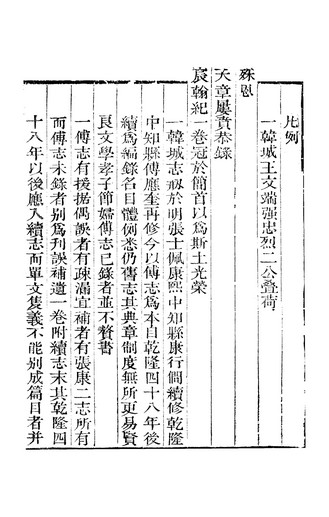 凡例
一韓城王文端强忠烈二公疊荷
殊恩
天章屢賁恭錄
宸翰紀一卷冠於簡首以爲斯土光榮
一韓城志刱於明張士佩康熙中知縣康行僩續修乾隆
中知縣傅應奎再修今以傅志爲本自乾隆四十八年後
續爲編錄名目體例悉仍舊志其典章制度無所更易賢
良文學孝子節婦傅志已錄者並不贅書
一傅志有援據偶誤者有疎漏宜補者有張康二志所有
而傅志未錄者別爲刊誤補遺一卷附續志末其乾隆四
十八年以後應入續志而單文隻義不能別成篇目者并